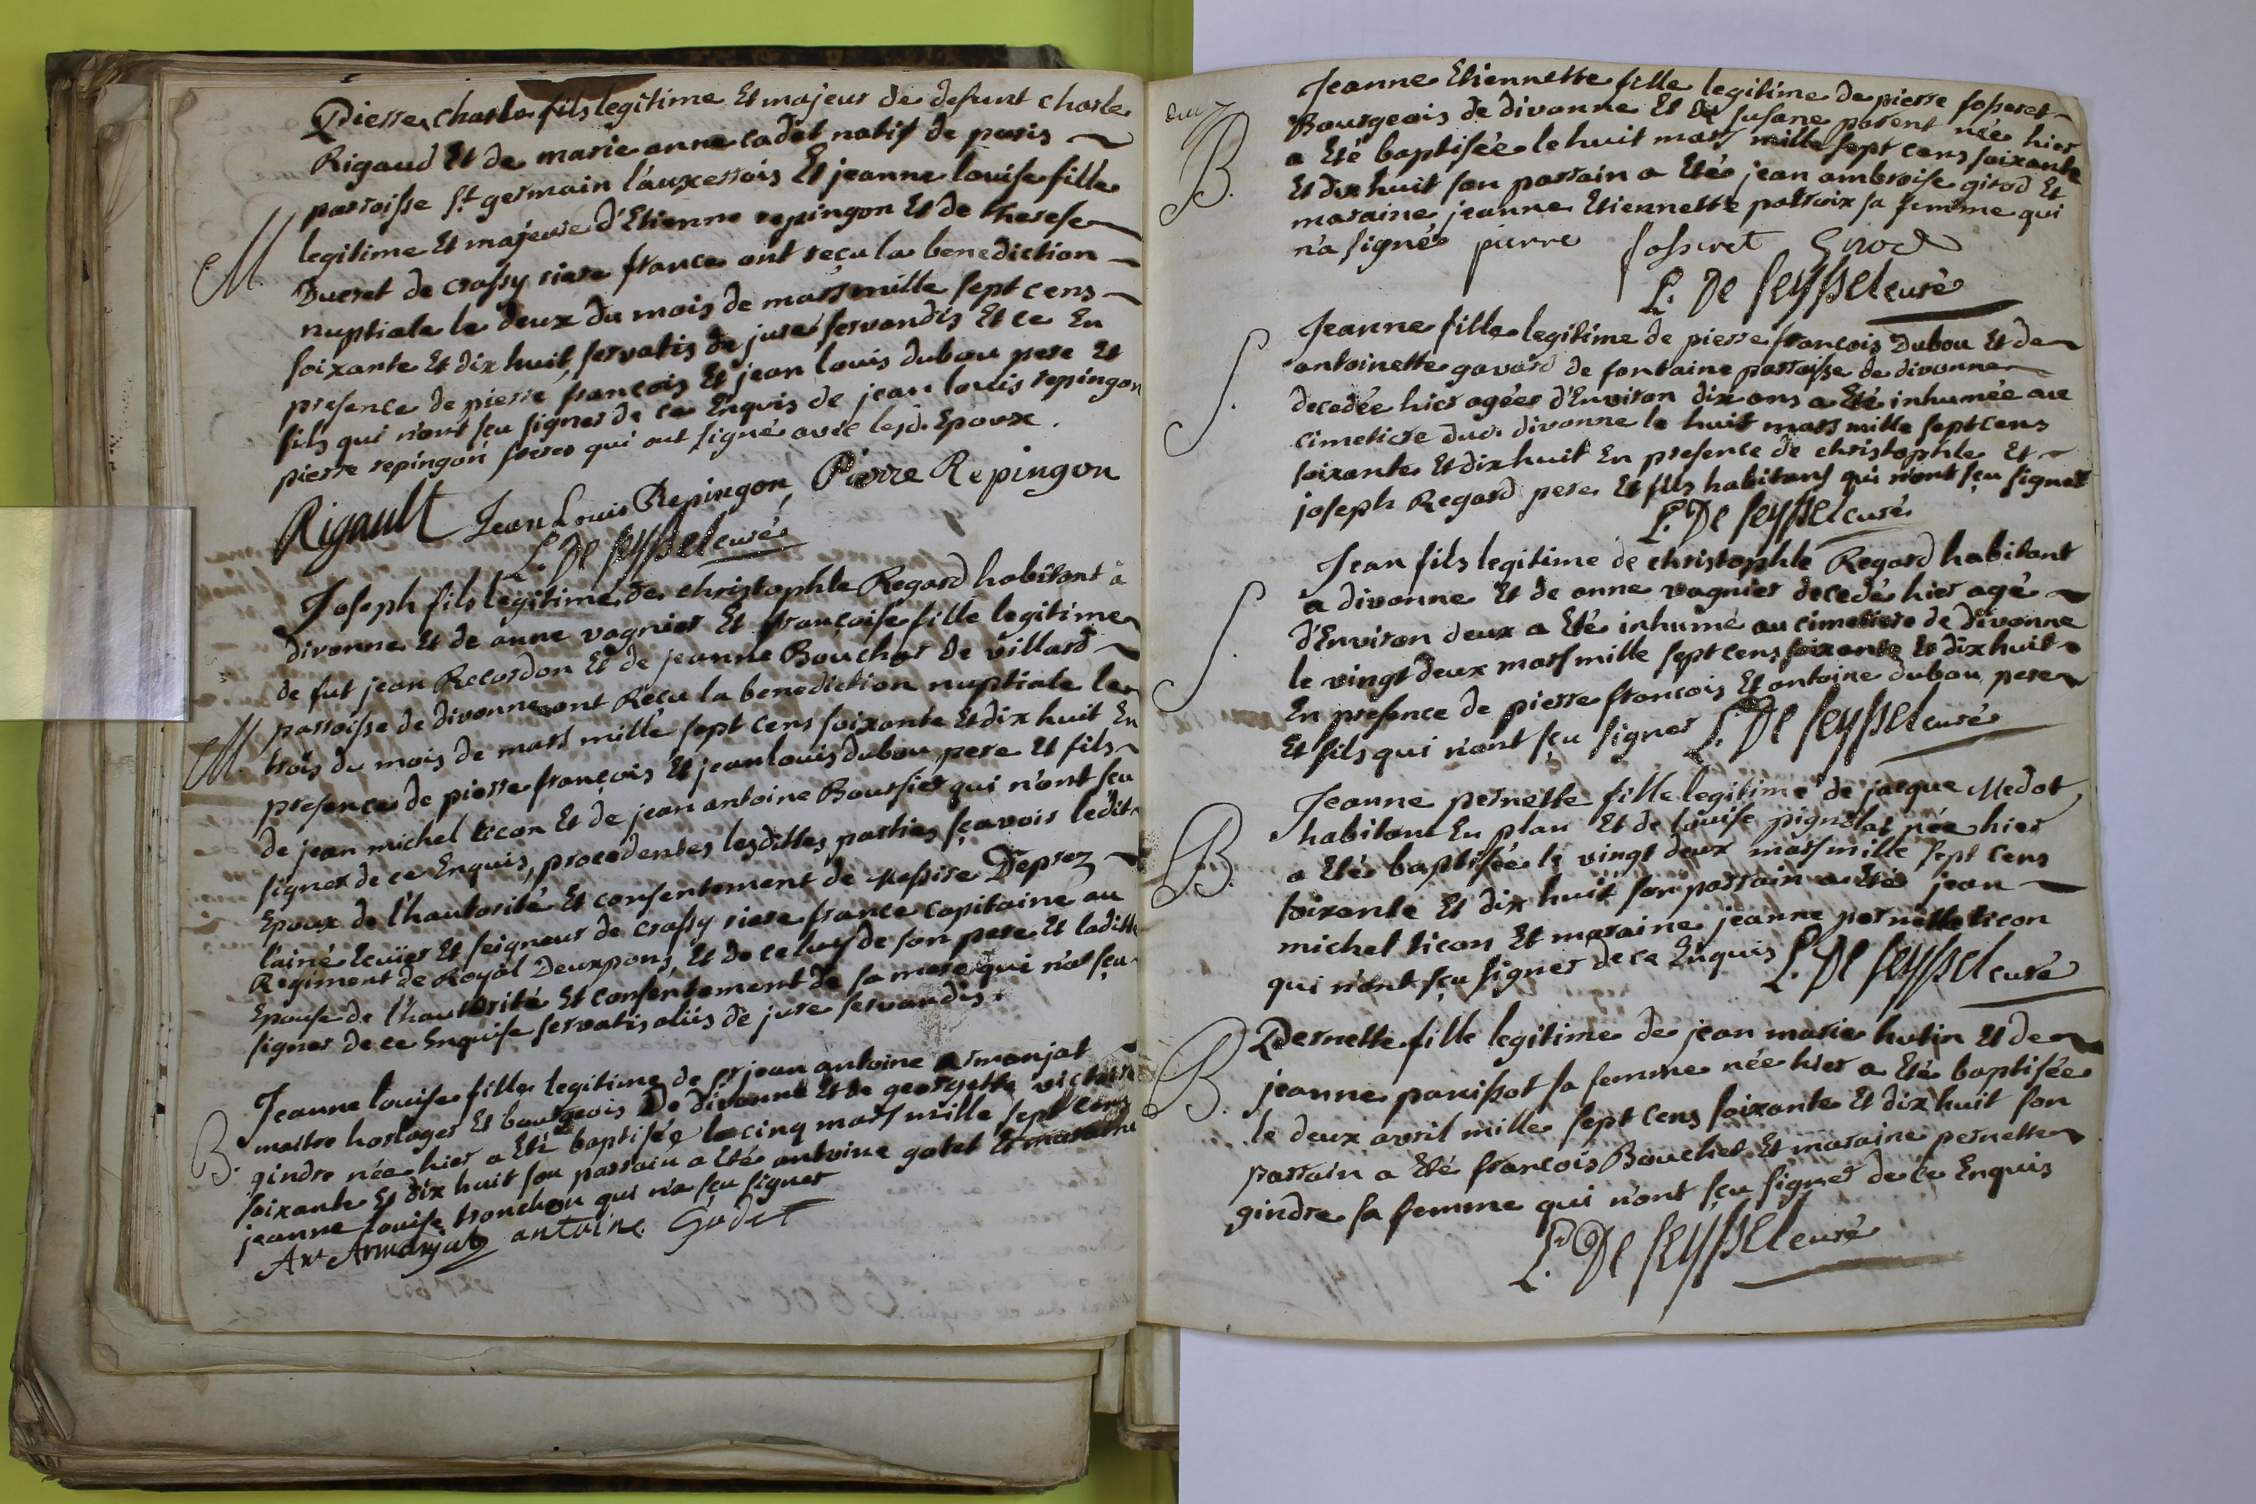 Pierre charle fils legitime Et majeur de defunt charle
Rigaud Et de marie anne cadet natif de paris
parroisse st germain l'auxerrois Et jeanne louise fille
legitime Et majeure d'Etienne repingon Et de therese
M.
Ducret de crassy riere france ont reçu la benediction
nuptiale le deux du mois de mars mille sept cens
soixante Et dix huit, servatis de jure servandis Et ce En
presence de pierre françois Et jean louis dubou pere Et
fils qui n'ont sçu signer de ce Enquis de jean louis repingon
pierre repingon freres qui ont signé avec lesd. Epoux.
Rigault Jean Louis Repingon, Pierre Repingon
L. De Seyssel curé
Joseph fils legitime de christophle Regard habitant à
divonne Et de anne vagnier Et françoise fille legitime
de fut jean Recordon Et de jeanne Boucher de villard
parroisse de divonne ont Reçu la benediction nuptiale le
M.
trois du mois de mars mille sept cens soixante Et dix huit En
presence de pierre françois Et jean louis dubou pere Et fils
de jean michel ticon Et de jean antoine Boursier qui n'ont sçu
signer de ce Enquis, procedentes lesdittes parties sçavoir ledit
Epoux de l'hautorité Et consentement de Messire Deprez
l'ainé Ecuier Et seigneur de crassy riere france capitaine au
Regiment de Royal Deuxpons, Et de celuy de son pere Et laditte
Epouse de l'hautorité Et consentement de sa mere qui n'at sçu
signer de ce Enquise servatis aliis de jure servandis.
Jeanne louise fille legitime de sr jean antoine armanjat
maitre horloger Et bourgeois De divonne Et de georgette victoire
B.
gindre née hier a Eté baptisée le cinq mars mille sept cens
soixante Et dix huit son parrain a Eté antoine gotet Et maraine
jeanne louise tronchon qui n'a sçu signer
Ant Armanjat antoine Godet
Jeanne Etiennette fille legitime de pierre fosseret
Bourgeois de divonne Et de susane parent née hier
B.
a Eté baptisée le huit mars mille sept cens soixante
Et dix huit son parrain a Eté jean ambroise girod Et
maraine jeanne Etiennette patroix sa femme qui
n'a signé pierre fosseret Girod
L. De Seyssel curé
Jeanne fille legitime de pierre françois Dubou Et de
S.
antoinette gavard de fontaine parroisse de divonne
decedée hier agée d'Environ dix ans a Eté inhumée au
cimetiere dud. divonne le huit mars mille sept cens
soixante Et dix huit En presence de christophle Et
joseph Regard pere Et fils habitans qui n'ont sçu signer
L. De Seyssel curé
Jean fils legitime de christophle Regard habitant
S.
a divonne Et de anne vagnier decedé hier agé
d'Environ deux a Eté inhumé au cimetiere de divonne
le vingt deux mars mille sept cens soixante Et dix huit
En presence de pierre françois Et antoine dubou pere
Et fils qui n'ont sçu signer L. De Seyssel curé
Jeanne pernette fille legitime de jacque Medot
B.
habitant En plan Et de louise pignolat née hier
a Eté baptisée le vingt deux mars mille sept cens
soixante Et dix huit son parrain a Eté jean
michel ticon Et maraine jeanne pernette ticon
qui n'ont sçu signer de ce Enquis L. De Seyssel curé
Pernette fille legitime de jean marie hutin Et de
B.
jeanne panissot sa femme née hier a Eté baptisée
le deux avril mille sept cens soixante Et dix huit son
parrain a Eté françois Bouchet Et maraine pernette
gindre sa femme qui n'ont sçu signer de ce Enquis
L. De Seyssel curé